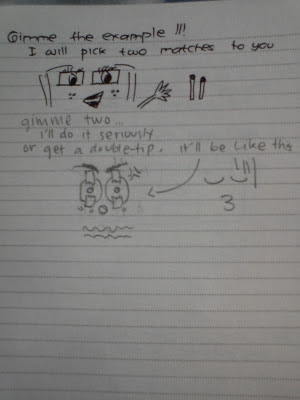 Gimme the example !!!
I will pick two matches to you
gimme two...
i'll do it seriously
or get a doubletip. it'll be like this
3